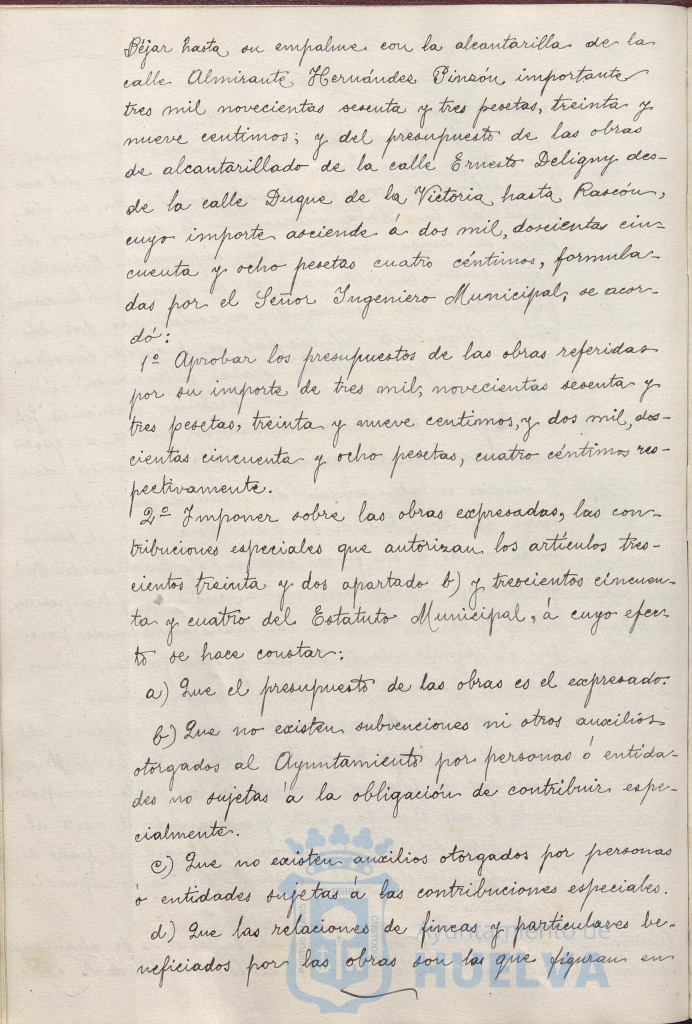 Béjar hasta su empalme con la alcantarilla de la
calle Almirante Hernández Pinzón, importante
tres mil novecientas sesenta y tres pesetas, treinta y
nueve centimos; y del presupuesto de las obras
de alcantarillado de la calle Ernesto Deligny des-
de la calle Duque de la Victoria, hasta Rascón,
cuyo importe asciende á dos mil, doscientas cin-
cuenta y ocho pesetas cuatro céntimos, formula-
das por el Señor Ingeniero Municipal, se acor-
dó:
1º Aprobar los presupuestos de las obras referidas
por su importe de tres mil, novecientas sesenta y
tres pesetas, treinta y nueve centimos, y dos mil, dos-
cientas cincuenta y ocho pesetas, cuatro céntimos res-
pectivamente.
2º Imponer sobre las obras expresadas, las con-
tribuciones especiales que autorizan los artículos tres-
cientos treinta y dos apartado b) y trescientos cincuen-
ta y cuatro del Estatuto Municipal, á cuyo efec-
to se hace constar:
a) Que el presupuesto de las obras es el expresado.
b) Que no existen subvenciones ni otros auxilios
otorgados al Ayuntamiento por personas ó entida-
des no sujetas á la obligación de contribuir espe-
cialmente.
c) Que no existen auxilios otorgados por personas
ó entidades sujetas á las contribuciones especiales.
d) Que las relaciones de fincas y particulares be-
neficiados por las obras son las que figuran en
Ayuntamiento de
HUELVA